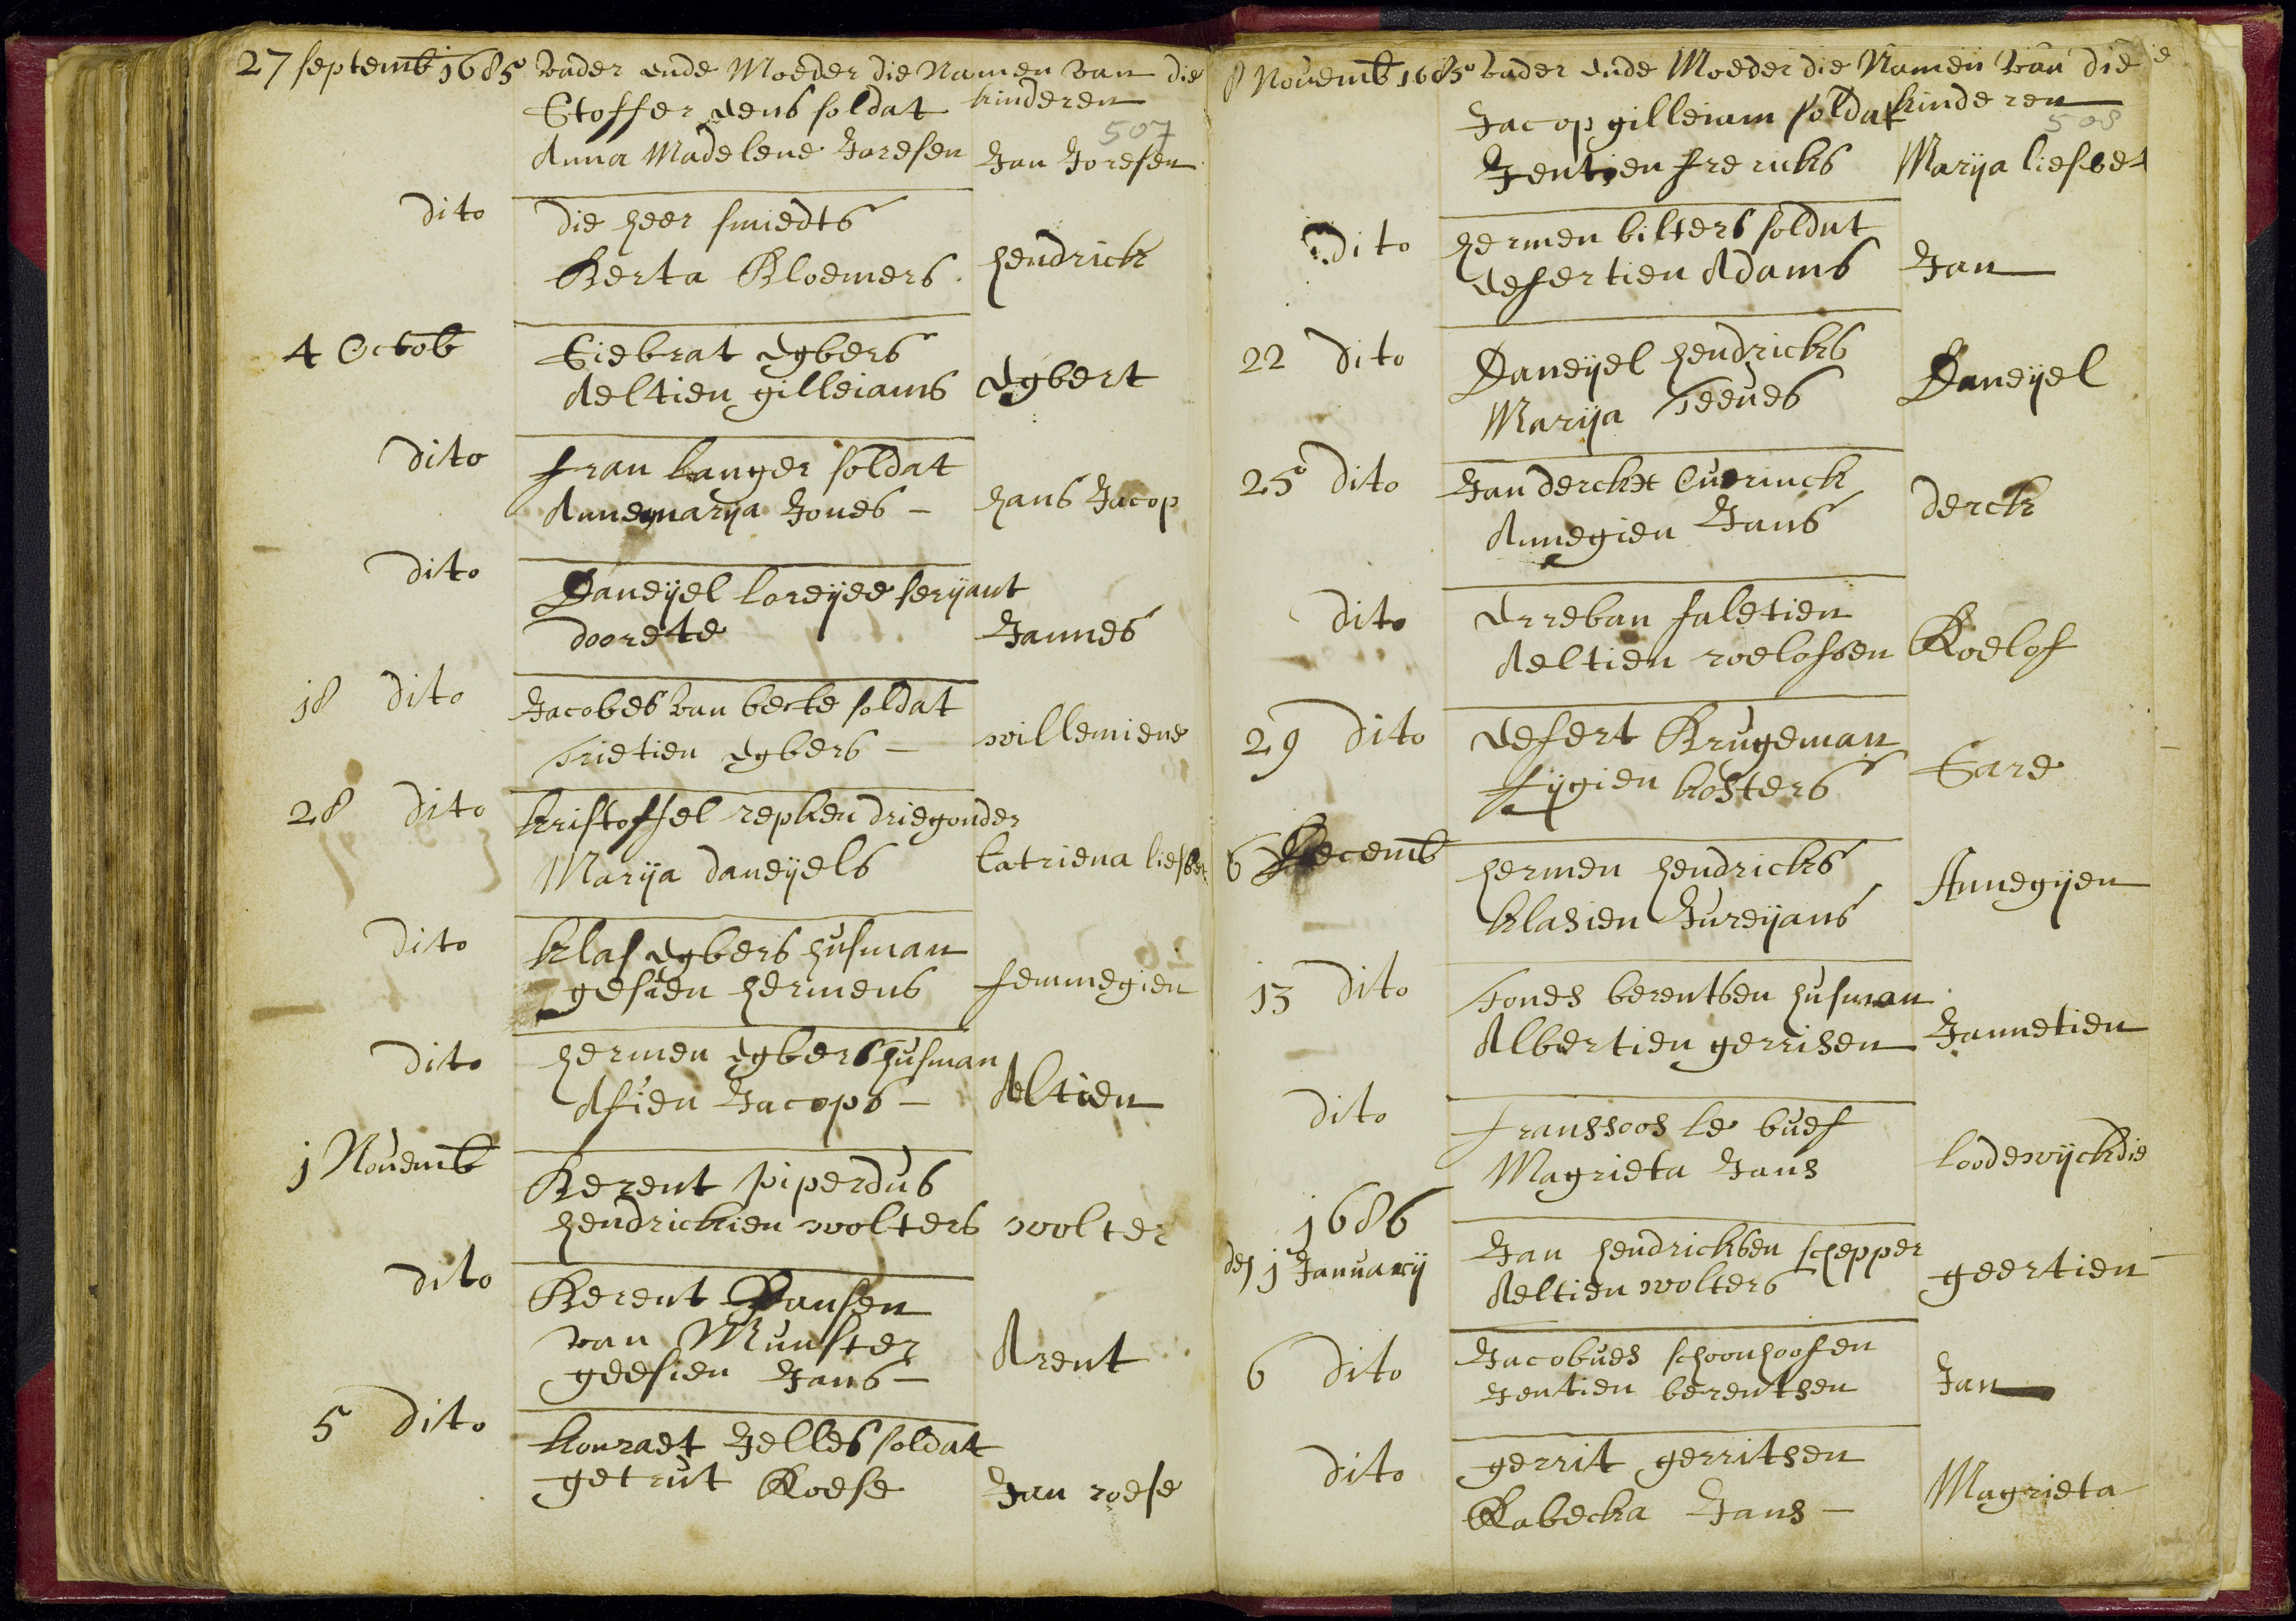 27 septemb 1685 vader ende Moeder die Namen van die
Stoffer dens soldat kinderen
507
Anna Madelene Joresen Jan Joresen
dito die heer smiedts
Berta Bloemers hendrick
4 Octob Siebrat Egbers
Aeltien gilleiams Egbert
dito fran langer soldat
Annemarija Jones – hans Jacop
dito Daneijel loreijee serijant
doorete Jannes
18 dito Jacobes van beeke soldat
Trietien Egbers – willemiene
28 dito kristoffel repken driegonder
Marija daneijels Catriena liesbet
dito klas Egbers husman
gesien hermens femmegien
dito hermen Egbers husman
Asien Jacops – Altien
1 Novemb Berent piperdus
hendrickien wolters wolter
dito Berent Hansen
van Munster
geesien Jans – Arent
5 dito konraet Jelles soldat
getrut Roese Jan roese
8 Novemb 1685 vader ende Moeder die Namen van die
Jacop gilleiam soldat kinderen
508
Jentien frericks Marija liesbet
dito hermen bilters soldat
Eefertien Adams Jan
22 dito Daneijel hendricks
Marija Teeues Daneijel
25 dito Jan derckx Ouerinck
Annegien Jans derck
dito Erreban faletien
Aeltien roelofsen Roelof
29 dito Eefert Brugeman
fijgien kosters Sare
6 Decemb hermen hendricks
klasien Jureijans Annegijen
13 dito Tones berentsen husman
Albertien gerrisen Jannetien
dito franssoos le buef
Magrieta Jans loodewijckdie
1686
den 1 Januarij Jan hendricksen schepper
Aeltien wolters geertien
6 dito Jacobues schoonhoofen
Jentien berentsen Jan
dito gerrit gerritsen
Rabecka Jans – Magrieta